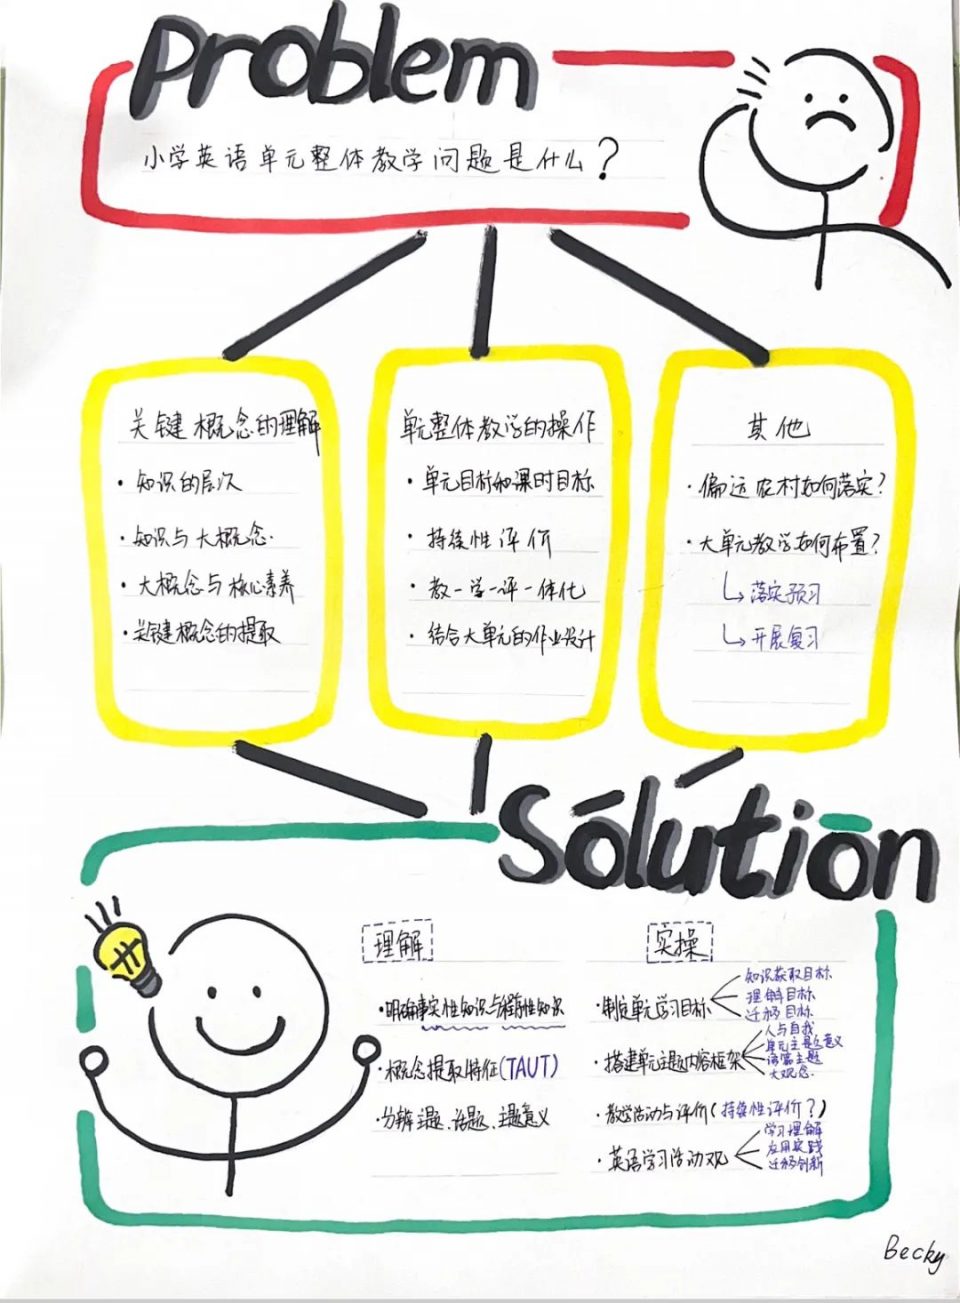 Problem
小学英语单元整体教学问题是什么？
关键概念的理解
·知识的层次
·知识与大概念.
·大概念与核心素养
·关键概念的提取
单元整体教学的操作
·单元目标和课时目标
·持续性评价
·教-学-评-体化
·结合大单元的作业设计
其他
·偏远农村如何落实?
·大单元教学如何布置?
落实预习
开展复习
Solution
理解
·明确事实性知识与程序性知识
·概念提取特征(TAUT)
·分辨主题、话题、主题意义
实操
·制定单元学习目标
知识获取目标
理解目标
迁移目标
·搭建单元主题内容框架
人与自我
单元主题意义
语篇主题
大观念.
·教学活动与评价(持续性评价?)
·英语学习活动观
学习理解
应用实践
迁移创新
Becky